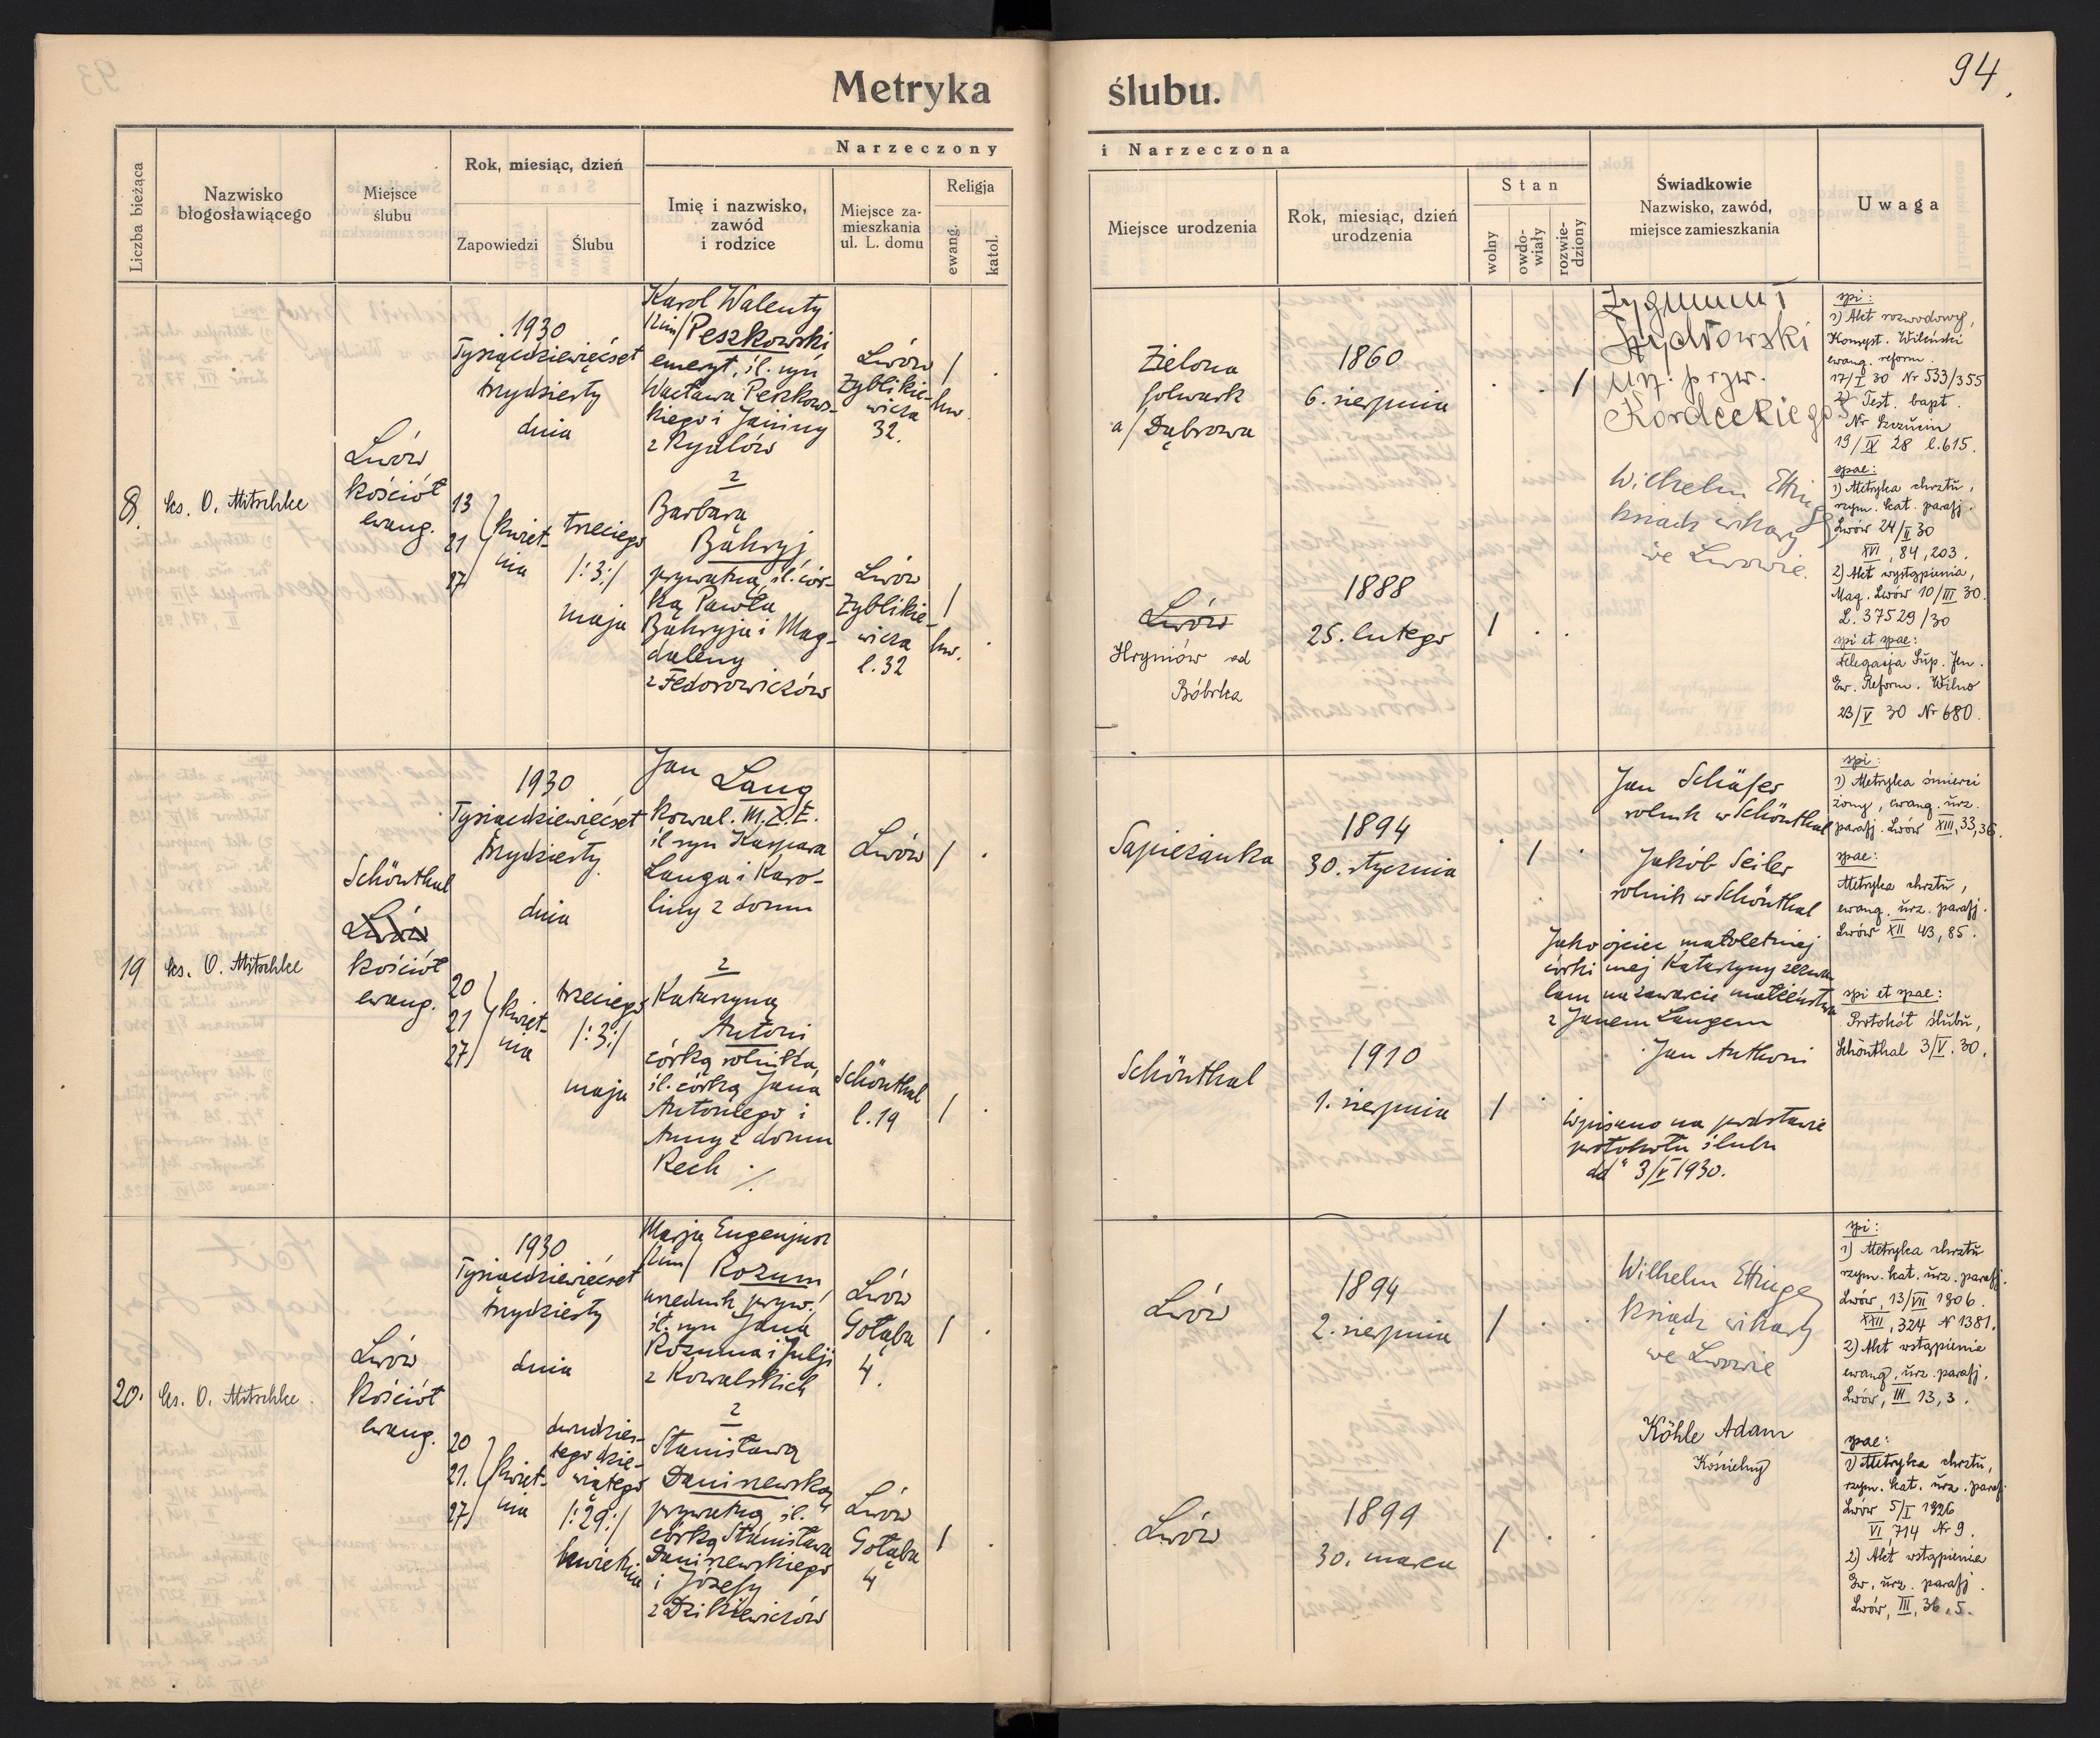 94.
Metryka ślubu.
Liczba bieżąca
Nazwisko
błogosławiącego
Miejsce
ślubu
Rok, miesiąc, dzień
Zapowiedzi
Ślubu
Narzeczony
Imię i nazwisko,
zawód
i rodzice
Miejsce za-
mieszkania
ul. L. domu
Religja
ewang.
katol.
i Narzeczona
Miejsce urodzenia
Rok, miesiąc, dzień
urodzenia
Stan
wolny
owdo-
wiały
rozwie-
dziony
Świadkowie
Nazwisko, zawód,
miejsce zamieszkania
Uwaga
8.
ks. O. Mitschke
Lwów
kościół
ewang.
1930
Tysiącdziewięćset
trzydziesty
dnia
13
21
27
kwiet-
nia
trzeciego
/:3:/
maja
Karol Walenty
/2im/ Peszkowski
emeryt, śl. syn
Wacława Peszkows-
kiego i Janiny
z Rydlów
z
Barbarą
Bahryj
prywatną, śl. cór-
ką Pawła
Bahryja i Mag-
daleny
z Fedorowiczów
Lwów
Zyblikie-
wicza
32.
/
hw.
Lwów
Zyblikie-
wicza
l. 32
/
hw.
Zielona
folwark
a/ Dąbrowa
1860
6. sierpnia
/
Lwów
Hryniów ad
Bóbrka
1888
25. lutego
/
Zygmunt
Szydłowski
urz. pryw.
Kordeckiego 5
Wilhelm Ettinger
ksiądz wikary
we Lwowie.
spi:
1) Akt rozwodowy,
Konsyst. Wileński
ewang. reform.
17/I 30 Nr 533/355
2) Test. bapt.
Nr Szczucin
19/IX 28 l. 615.
spae:
1) Metryka chrztu,
rzym. kat. parafj.
Lwów 24/II 30
XVI, 84, 203.
2) Akt wystąpienia,
Mag. Lwów 10/III 30.
L. 37529/30
spi et spae:
delegacja Sup. Jen.
Ew. Reform. Wilno
23/V 30 Nr 680.
19
ks. O. Mitschke
Schönthal
Lwów
kościół
ewang.
1930
Tysiącdziewięćset
trzydziesty
dnia
20
21
27
kwiet-
nia
trzeciego
/:3:/
maja
Jan Lang
kowal. M.Z.E.
śl. syn Kaspra
Langa i Karo-
liny z domu
z
Katarzyną
Antoni
córką rolnika,
śl. córką Jana
Antoniego i
Anny z domu
Rech ./.
Lwów
/
Schönthal
l. 19
/
Sapieżanka
1894
30. stycznia
/
Schönthal
1910
1. sierpnia
/
Jan Schäfer
rolnik w Schönthal
Jakób Seiler
rolnik w Schönthal
Jako ojciec małoletniej
córki mej Katarzyny zezwa-
lam na zawarcie małżeństwa
z Janem Langem
Jan Anthoni
wpisano na podstawie
protokołu ślubu
dd" 3/V 1930.
spi:
1) Metryka śmierci
żony, ewang. urz.
parafj. Lwów XIII, 33, 36.
spae:
Metryka chrztu,
ewang. urz. parafj.
Lwów XII 43, 85.
spi et spae:
Protokół ślubu,
Schönthal 3/V. 30.
20.
ks. O. Mitschke.
Lwów
kościół
ewang.
1930
Tysiącdziewięćset
trzydziesty
dnia
20
21.
27
kwiet-
nia
dwudzies-
tego dzie-
wiątego
/:29:/
kwietnia
Marja Eugenjusz
/2im/ Rozum
urzednik pryw.
śl. syn Jana
Rozuma i Julji
z Kowalskich
z
Stanisławą
Daniszewską
prywatną, śl.
córką Stanisława
Daniszewskiego
i Józefy
z Dzikiewiczów
Lwów
Gołąba
4.
/
Lwów
Gołąba
4
/
Lwów
1894
2. sierpnia
/
Lwów
1899
30. marca
/
Wilhelm Ettinger
ksiądz wikary
we Lwowie
Köhle Adam
Kościelny
spi:
1) Metryka chrztu
rzym. kat. urz. parafj.
Lwów, 13/VII 1906.
XXII, 324 N 1381.
2) Akt wstąpienia
ewang. urz. parafj.
Lwów, III 13, 3.
spae:
1) Metryka chrztu,
rzym. kat. urz. parafj.
Lwów 5/I 1926
VI, 714 Nr 9.
2) Akt wstąpienia
Ew. urz. parafj.
Lwów, III, 36, 5.